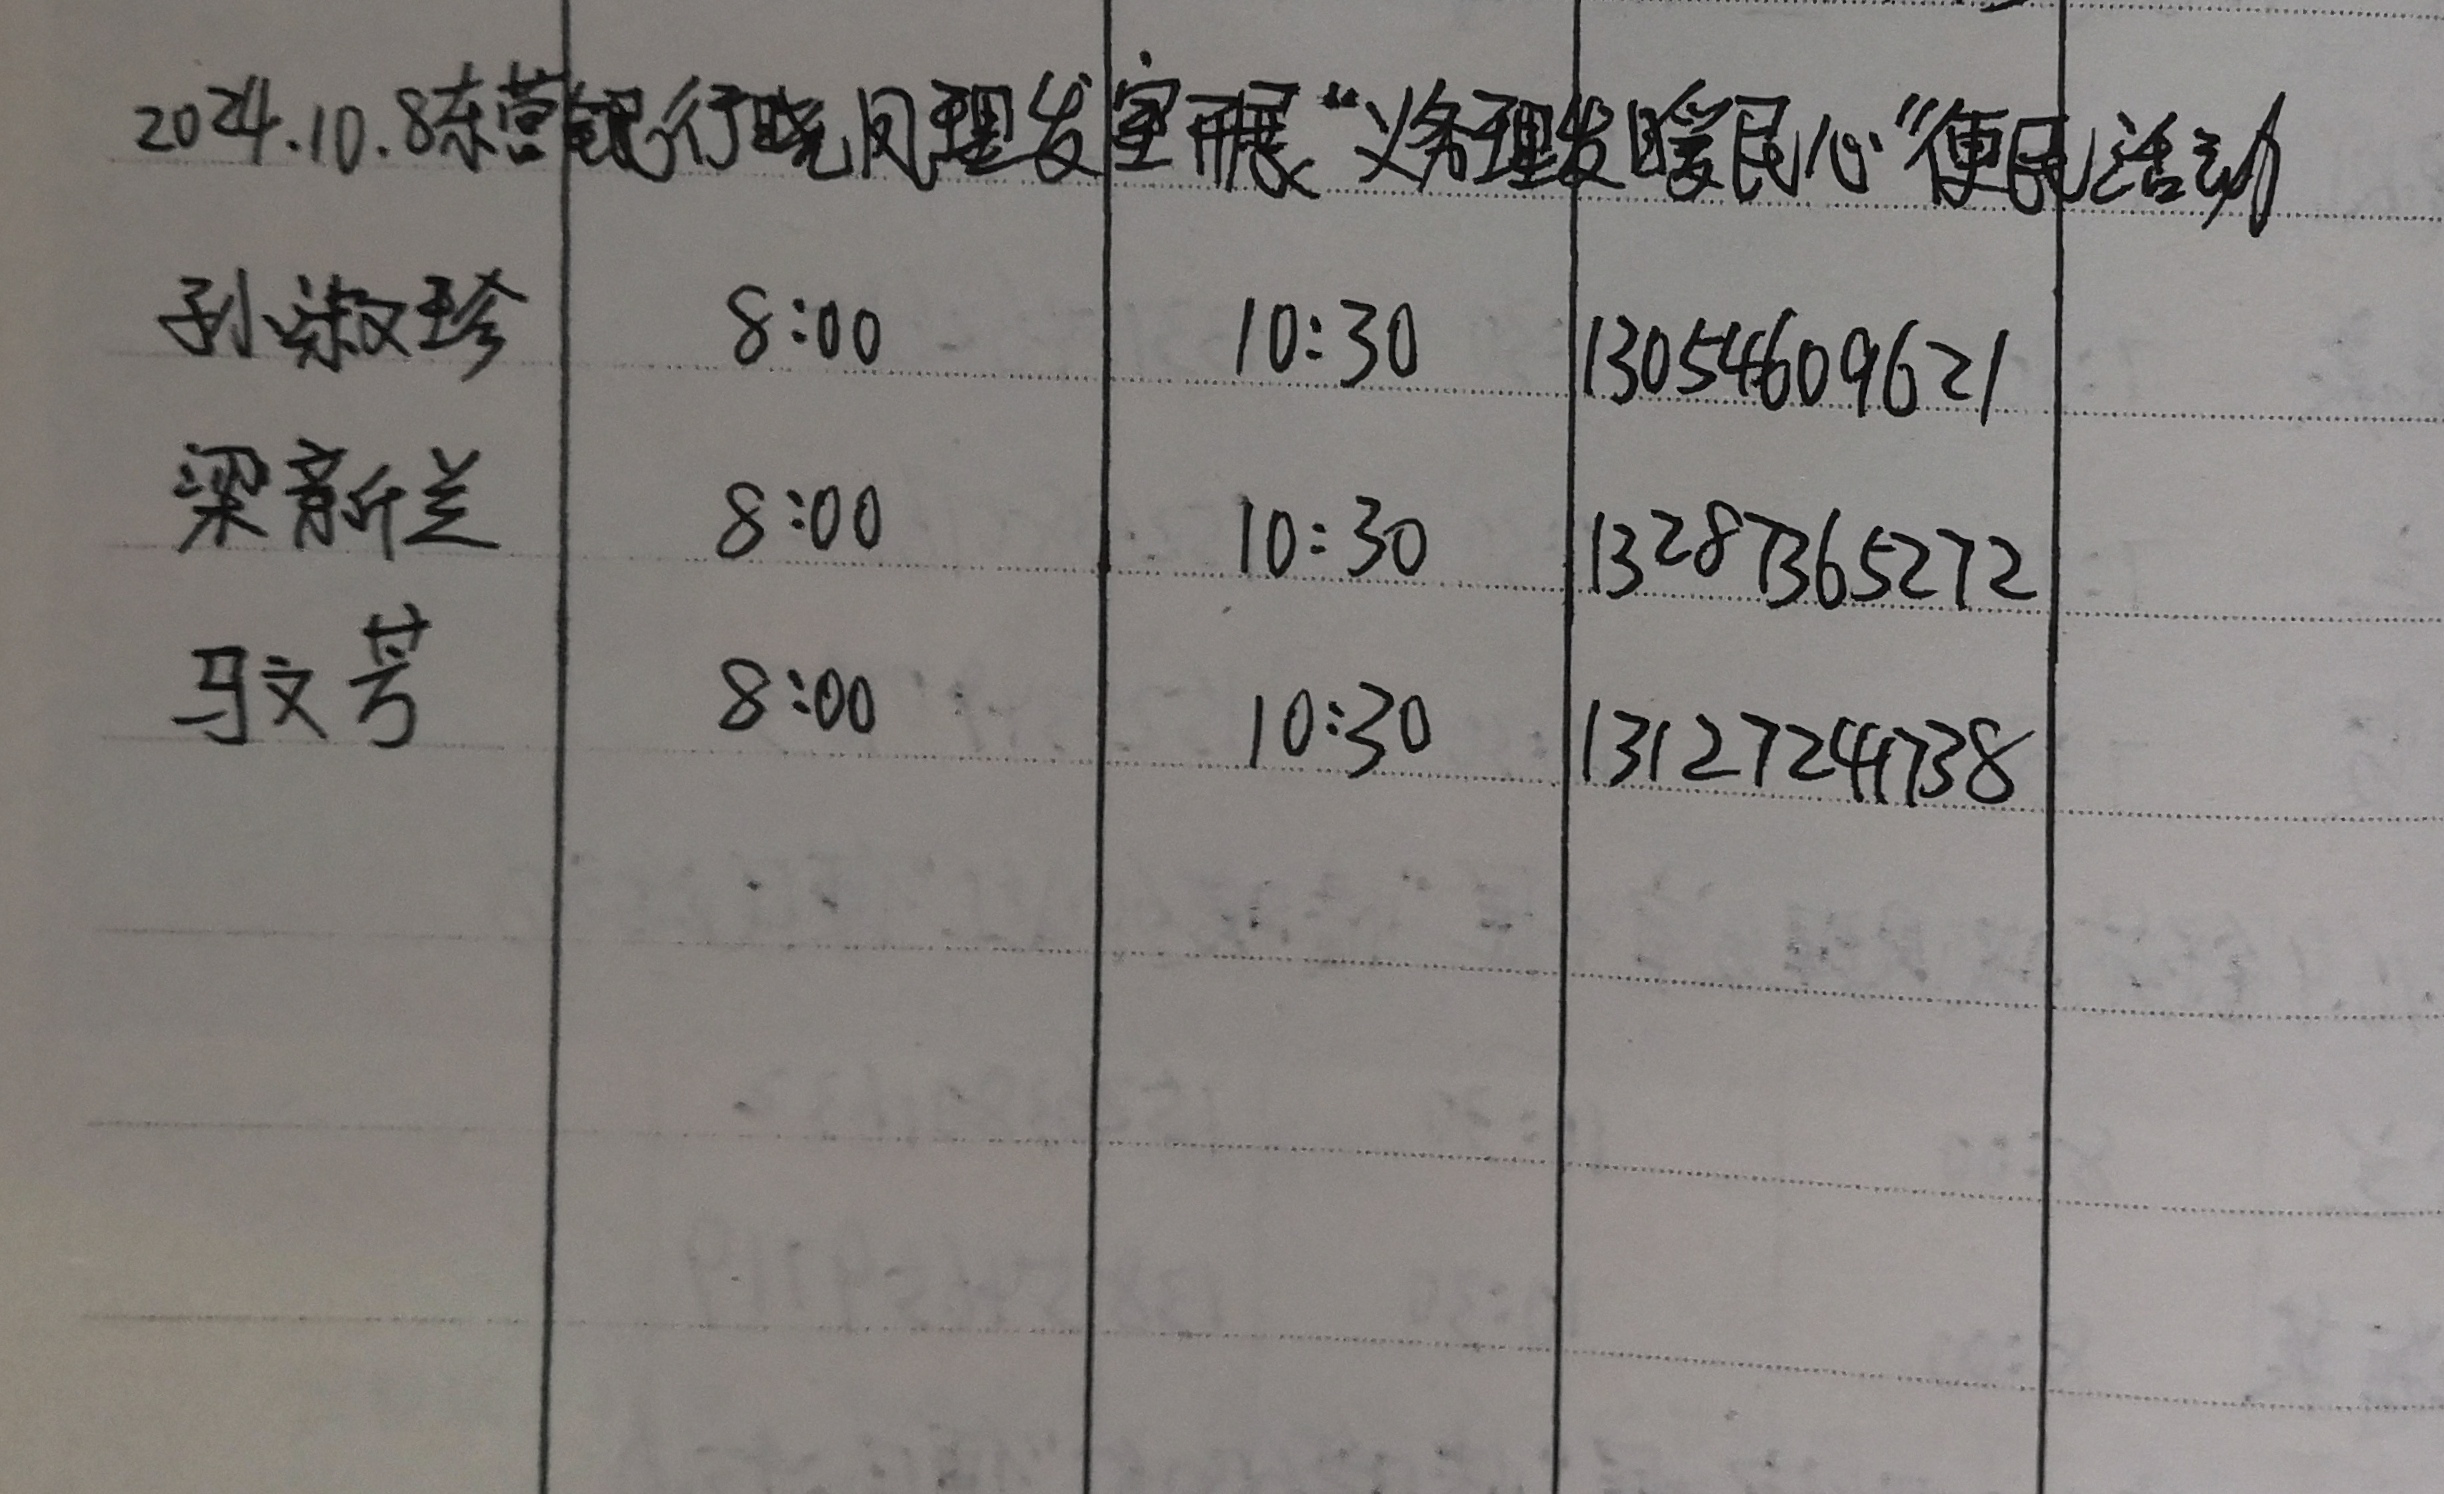 2024.10.8东营银行晓月理发室开展“义务理发暖民心”便民活动
孙淑珍 8:00 10:30 13054609621
梁新兰 8:00 10:30 13287365272
马文芳 8:00 10:30 13127244738